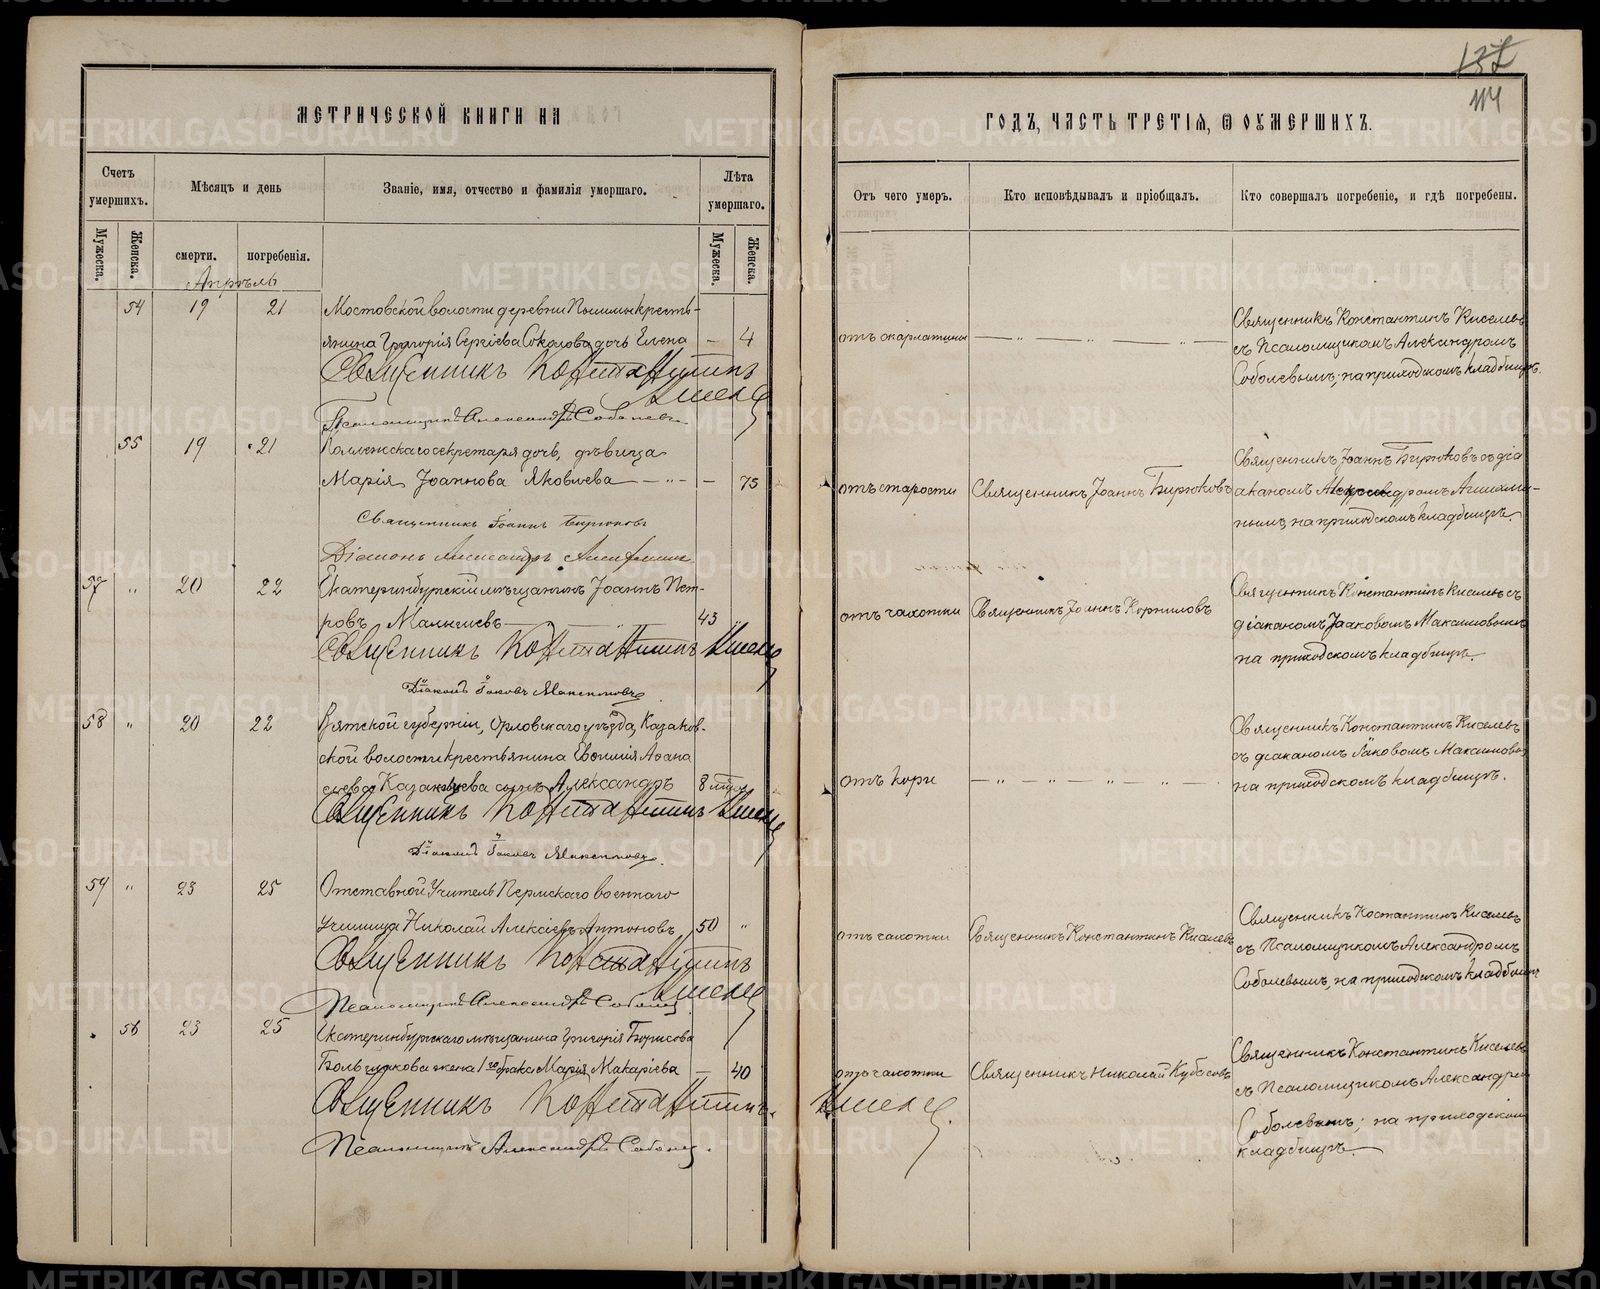 137
114
МЕТРИЧЕСКОЙ КНИГИ НА
ГОДЪ, ЧАСТЬ ТРЕТІЯ, Ѿ ОУМЕРШИХЪ.
Счетъ умершихъ.
Мѣсяцъ и день
Званіе, имя, отчество и фамилія умершаго.
Лѣта умершаго.
Отъ чего умеръ.
Кто исповѣдывалъ и пріобщалъ.
Кто совершалъ погребеніе, и гдѣ погребены.
Мужеска.
Женска.
смерти.
погребенія.
Мужеска.
Женска.
Апрѣль
54 19 21 Мостовской волости деревни Пышмы кресть-
янина Григорія Сергіева Соколова дочь Елена — 4
Священникъ Константинъ
Киселевъ
Псаломщикъ Александръ Соболевъ
отъ скарлатины — „ — „ —
Священникъ Константинъ Киселевъ
съ Псаломщикомъ Александромъ
Соболевымъ; на приходскомъ кладбищѣ.
55 19 21 Коллежскаго секретаря дочь, дѣвица
Марія Іоаннова Яковлева — „ — — 75
Священникъ Іоаннъ Бирюковъ
Діаконъ Александръ
отъ старости
Священникъ Іоаннъ Бирюковъ
Священникъ Іоаннъ Бирюковъ съ діа
акономъ Александромъ
на приходскомъ кладбищѣ.
57 „ 20 22 Екатеринбургскій мѣщанинъ Іоаннъ Пет-
ровъ Малышевъ — „ — 43 „
Священникъ Константинъ Киселевъ
Діаконъ Іаковъ Максимовъ
отъ чахотки
Священникъ Іоаннъ Корниловъ
Священникъ Константинъ Киселевъ съ
діакономъ Іаковомъ Максимовымъ
на приходскомъ кладбищѣ.
58 „ 20 22 Вятской губерніи, Орловскаго уѣзда, Казаков-
ской волости крестьянина Евѳимія Аѳана
сьева Казанцева сынъ Александръ 8 мѣсяц.
Священникъ Константинъ Киселевъ
Діаконъ Іаковъ Максимовъ
отъ кори — „ — „ — „ — „ —
Священникъ Константинъ Киселевъ
съ діакономъ Іаковомъ Максимовымъ
на приходскомъ кладбищѣ.
59 „ 23 25 Отставной Учитель Пермскаго военнаго
Училища Николай Алексіевъ Антоновъ 50 „
Священникъ Константинъ
Киселевъ
Псаломщикъ Александръ Соболевъ
отъ чахотки
Священникъ Константинъ Киселевъ
Священникъ Костантинъ Киселевъ
съ Псаломщикомъ Александромъ
Соболевымъ, на приходскомъ кладбищѣ
56 23 25 Екатеринбургскаго мѣщанина Григорія Борисова
Большакова жена 1го брака Марія Макаріева — 40
Священникъ Константинъ Киселевъ
Псаломщикъ Александръ Соболевъ.
отъ чахотки
Священникъ Николай Кубасовъ
Священникъ Константинъ Киселевъ
съ Псаломщикомъ Александромъ
Соболевымъ; на приходскомъ
кладбищѣ.
METRIKI.GASO-URAL.RU